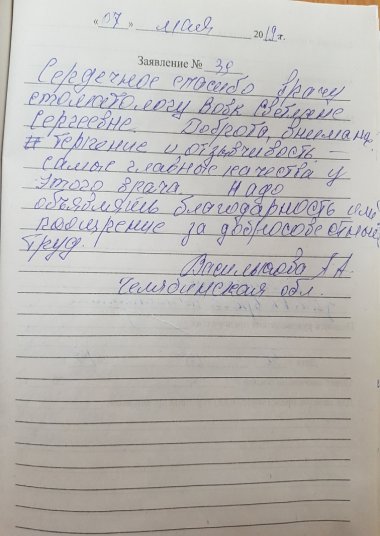 « 07 » мая 2019 г.
Заявление № 39
Сердечное спасибо врачу
стоматологу Вовк Светлане
Сергеевне. Доброта, внимание,
терпение и отзывчивость –
самые главные качества у
этого врача. Надо
объявлять благодарность или
поощрение за добросовестный
труд.
А А.
Челябинская обл